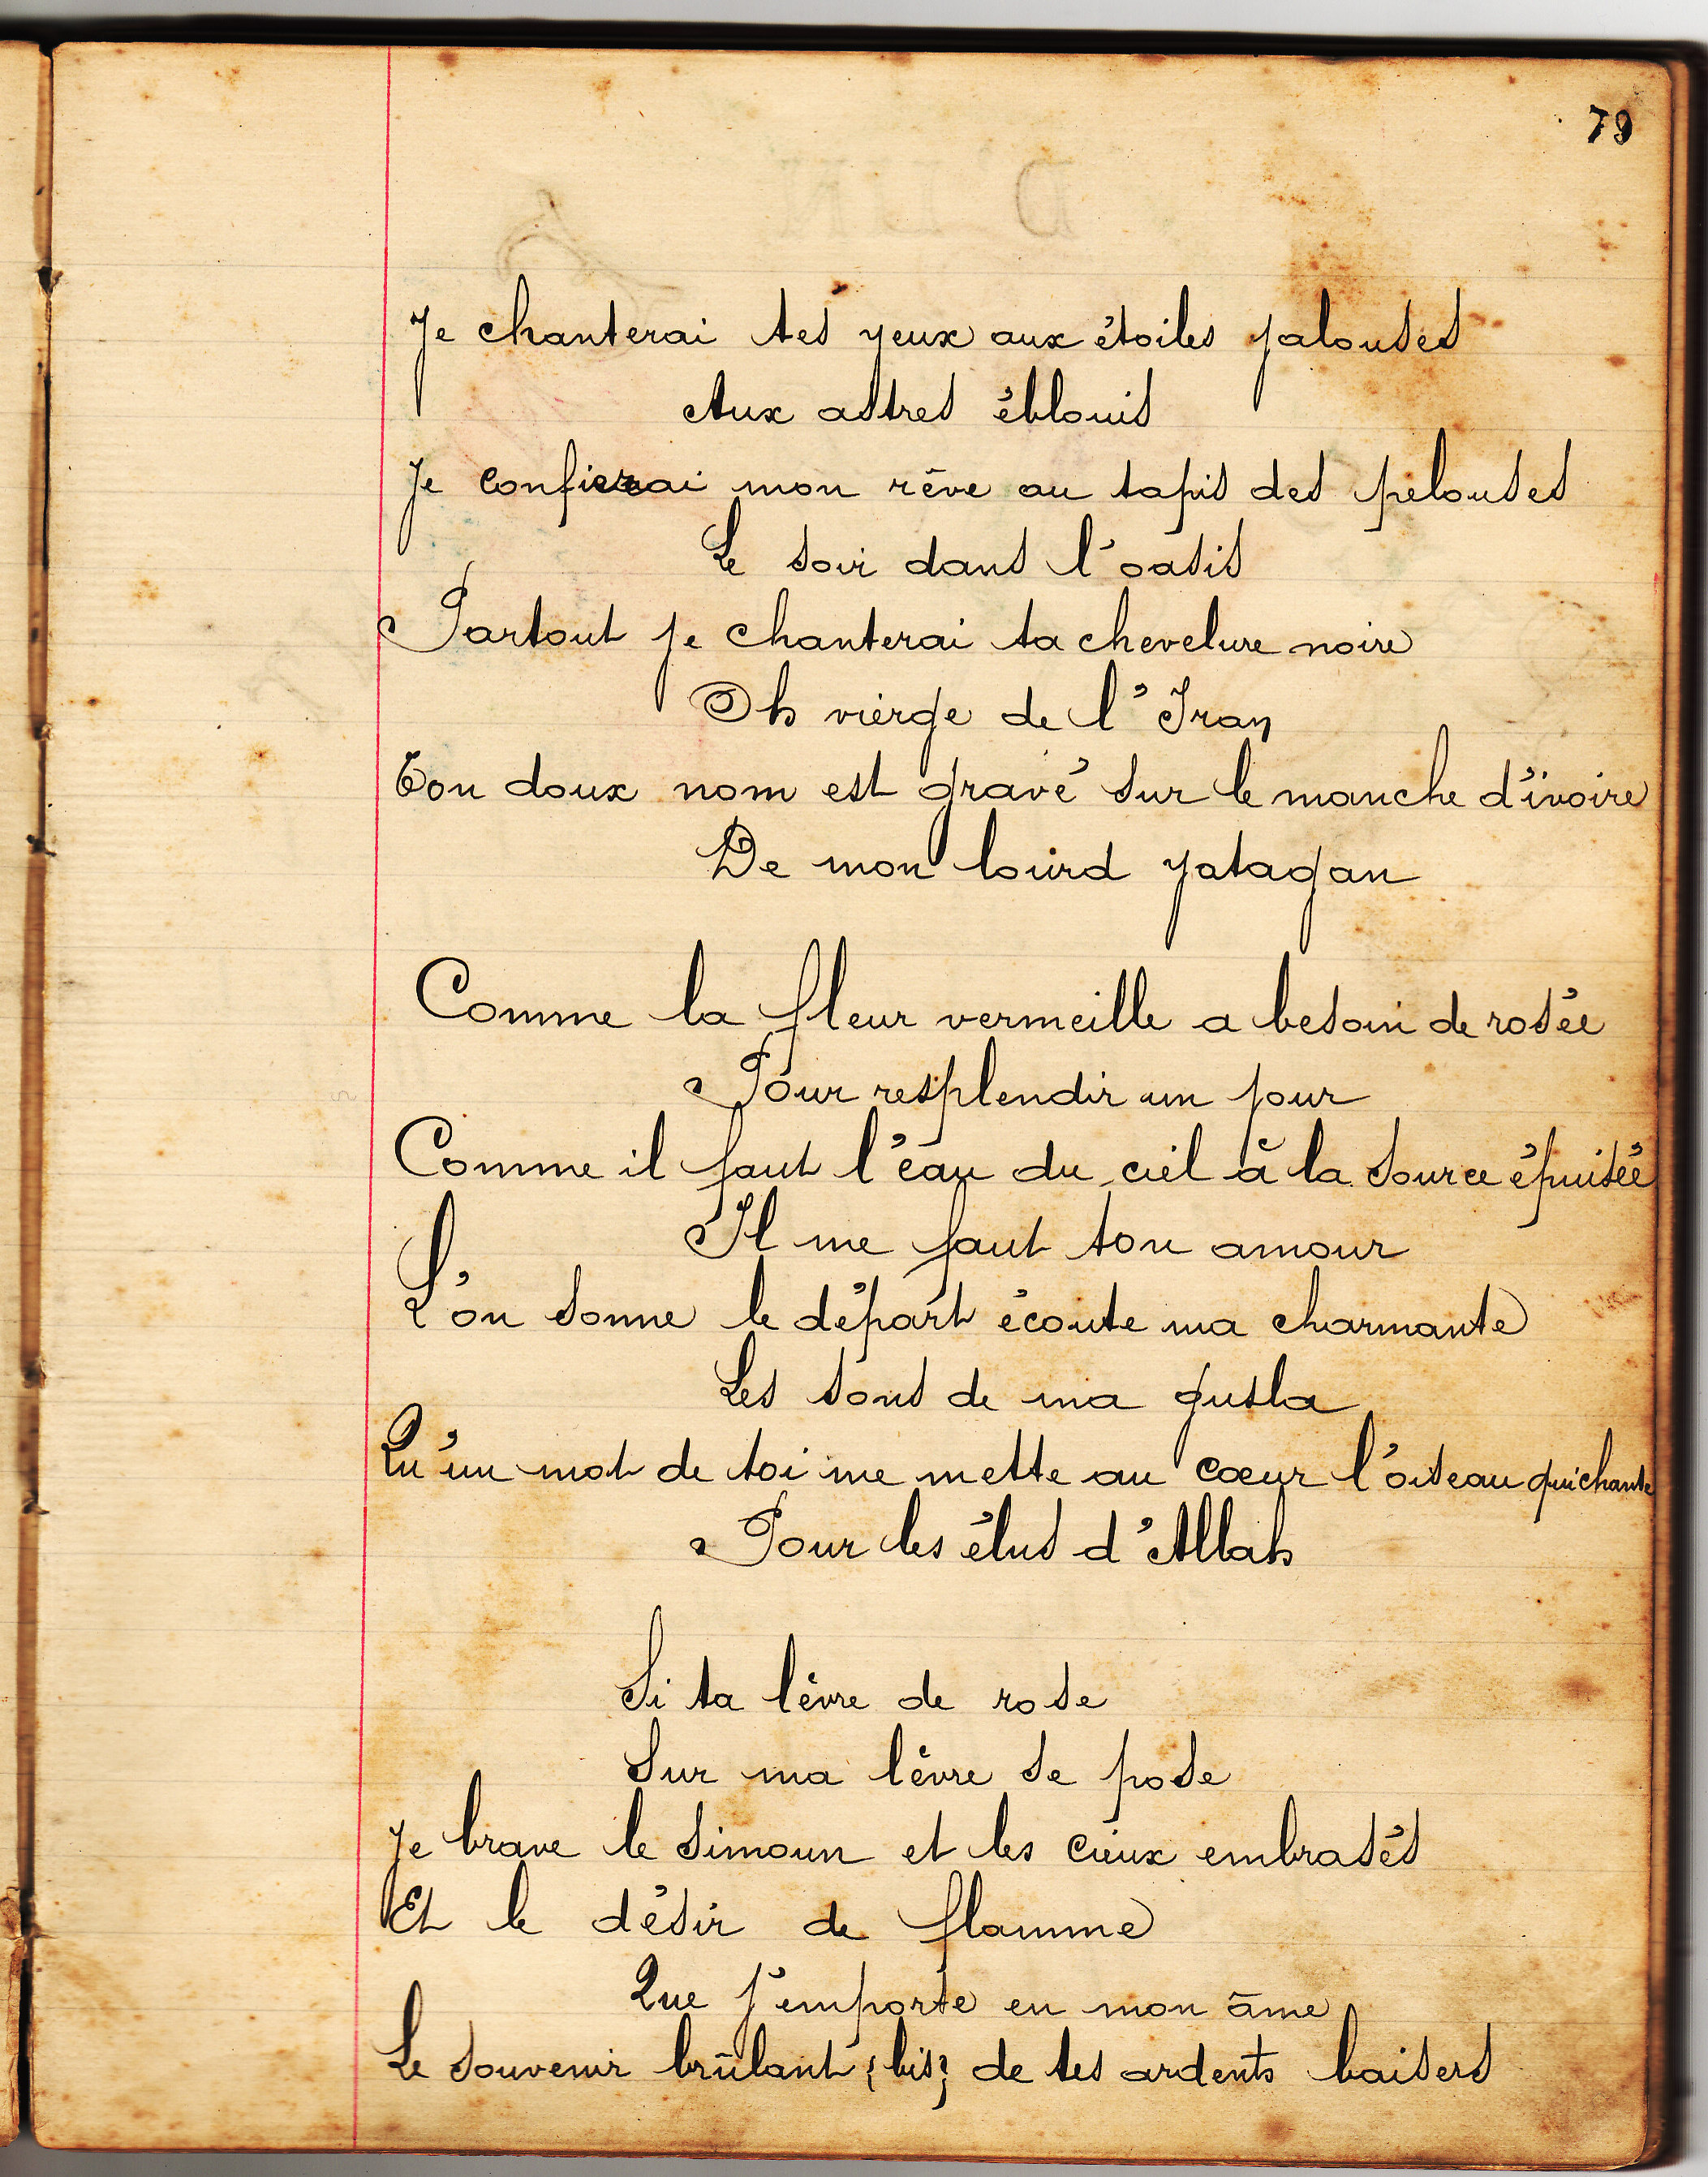 79
Je chanterai tes yeux aux étoiles jalouses
Aux astres éblouis
Je confierai mon rêve au tapis des pelouses
Le soir dans l'oasis
Partout je chanterai ta chevelure noire
Oh vierge de l'Iran
Ton doux nom est gravé sur le manche d'ivoire
De mon lourd yatagan
Comme la fleur vermeille a besoin de rosée
Pour resplendir un jour
Comme il faut l'eau du ciel à la source épuisée
Il me faut ton amour
L'on sonne le départ écoute ma charmante
Les sons de ma gusla
Qu'un mot de toi me mette au cœur l'oiseau qui chante
Pour les élus d'Allah
Si ta lèvre de rose
Sur ma lèvre se pose
Je brave le simoun et les cieux embrasés
Et le désir de flamme
Que j'emporte en mon âme
Le souvenir brûlant {bis} de tes ardents baisers